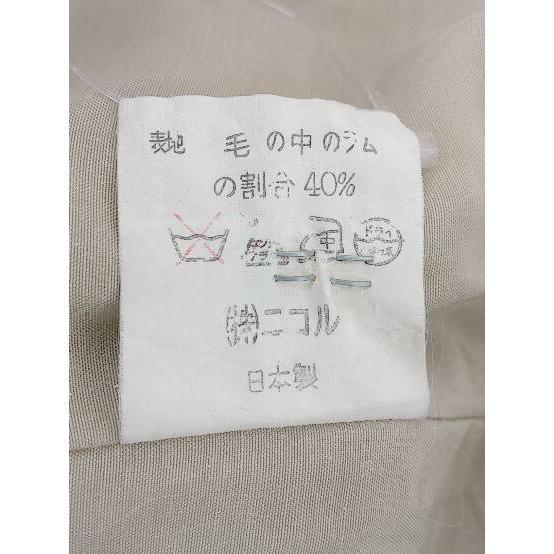 表地 毛の中のラム
の割合 40%
中
ドライ
㈱ニコル
日本製